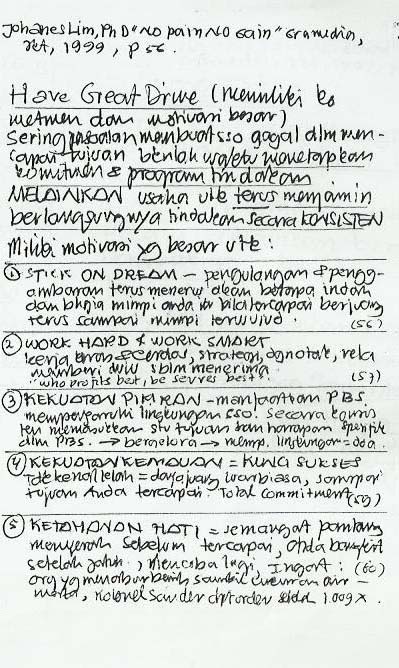 Johanes Lim, PhD "No pain No Gain" Gramedia,
1999, p 56.
Have Great Drive (memiliki ko
metmen dam motivasi besar)
Sering persoalan membuat sso gagal dlm men-
capai tujuan bknlah waktu menetapkan
komitmen & program tindakan
MELAINKAN usaha utk terus menjamin
berlangsungnya tindakan secara KONSISTEN
Miliki motivasi yg besar utk :
① STICK ON DREAM - pengulangan & pengg-
ambaran terus menerus akan betapa indah
dan bhgia mimpi anda itu bila tercapai berjuang
terus sampai mimpi terwujud. (56)
② WORK HARD & WORK SMART
kerja keras & cerdas, strategi, rela
memberi dulu sblm menerima
"who profits best, be serves best". (57)
③ KEKUATAN PIKIRAN - manfaatkan PBS.
mempengaruhi lingkungan sso. Secara
ten memasukan stu tujuan dan harapan spesifik
dlm PBS. → bergelora → memp. lingkungan = doa.
④ KEKUATAN KEMAUAN = KUNCI SUKSES
Tdk kenal lelah = daya juang luarbiasa, sampai
tujuan Anda tercapai. Total commitment (59)
⑤ KETAHANAN HATI = semangat pantang
menyerah sebelum tercapai, Anda bangkit
setelah jatuh, mencoba lagi, Ingat : (60)
org yg menabur benih sambil cucuran air -
mata, Kolonel Sander dpt order stlah 1.009 X.